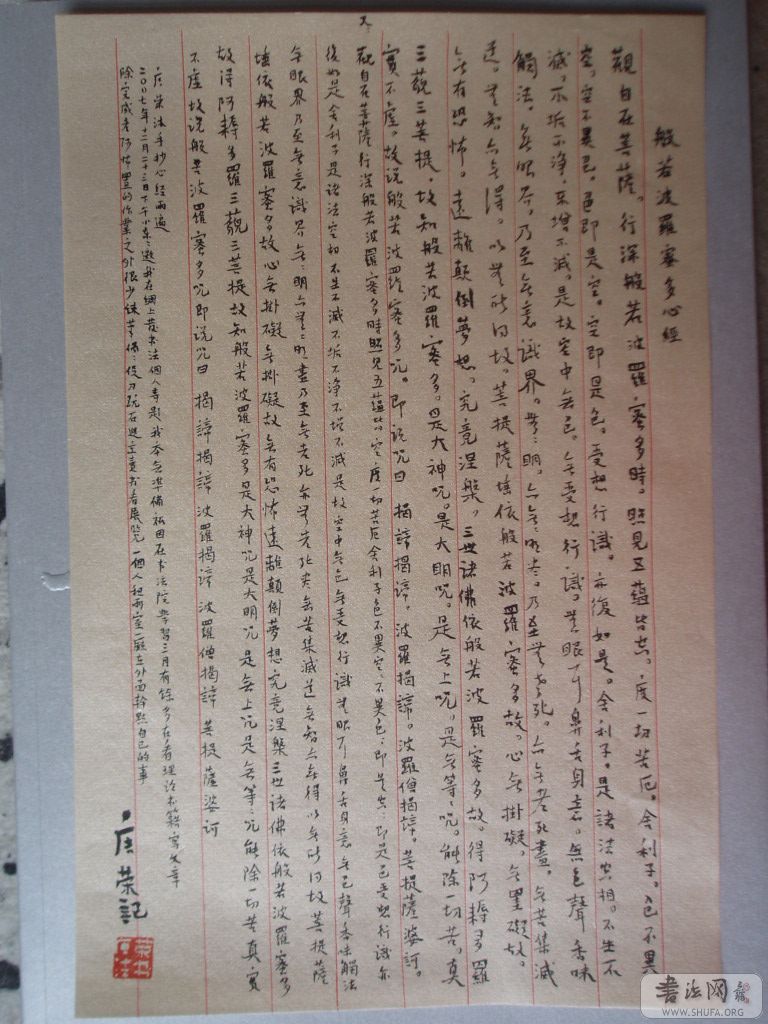 般若波羅蜜多心經
觀自在菩薩。行深般若波羅蜜多時。照見五蘊皆空。度一切苦厄。舍利子。色不異
空。空不異色。色即是空。空即是色。受想行識。亦復如是。舍利子。是諸法空相。不生不
滅。不垢不淨。不增不減。是故空中無色。無受想行識。無眼耳鼻舌身意。無色聲香味
觸法。無眼界。乃至無意識界。無無明。亦無無明盡。乃至無老死。亦無老死盡。無苦集滅
道。無智亦無得。以無所得故。菩提薩埵依般若波羅蜜多故。心無掛礙。無罣礙故。
無有恐怖。遠離顛倒夢想。究竟涅槃。三世諸佛依般若波羅蜜多故。得阿耨多羅
三藐三菩提。故知般若波羅蜜多。是大神咒。是大明咒。是無上咒。是無等等咒。能除一切苦。真
實不虛。故说般若波羅蜜多咒。即说咒曰 揭諦揭諦。波羅揭諦。波羅僧揭諦。菩提薩婆訶。
觀自在菩薩行深般若波羅蜜多時照見五蘊皆空度一切苦厄舍利子色不異空
復如是舍利子是諸法空相不生不滅不垢不净不增不減是故空中無色無受想行識無眼耳鼻舌身意無色聲香味觸法
無眼界乃至無意識界無無明亦無無明盡乃至無老死亦無老死盡無苦集滅道無智亦無得以無所得故菩提薩
埵依般若波羅蜜多故心無掛礙無掛礙故無有恐怖遠離顛倒夢想究竟涅槃三世諸佛依般若波羅蜜多
故得阿耨多羅三藐三菩提故知般若波羅蜜多是大神咒是大明咒是無上咒是無等等咒能除一切苦真實
不虛故说般若波羅蜜多咒即说咒曰 揭諦揭諦 波羅揭諦 波羅僧揭諦 菩提薩婆訶
手抄心經兩遍
二〇〇七年十二月二十三日下午 我在網上發書法個人專題我本無準備 在書法院學習三月有餘多在看理論書籍寫文章
除完成老師佈置的作業之外很少 一個人 在外面 自己的事
榮記
書法网
WWW.SHUFA.ORG